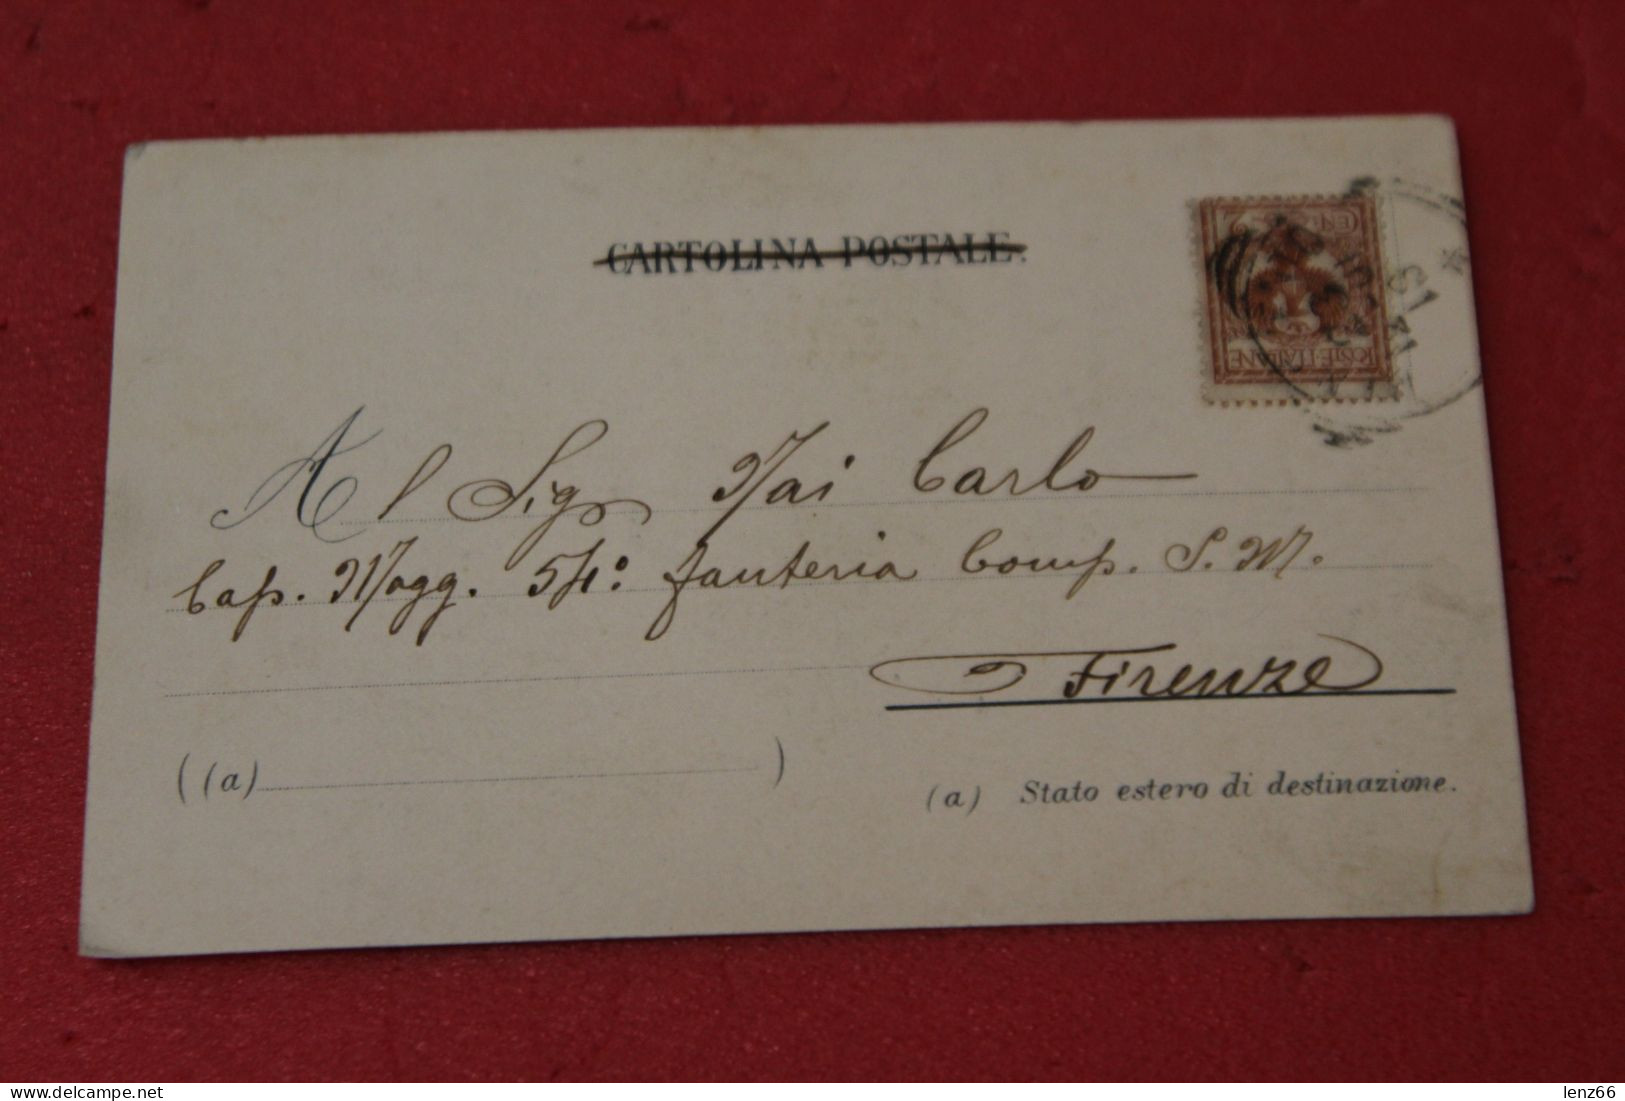 CARTOLINA POSTALE.
CENT. 2
POSTE·ITALIANE
Al Sig Mai Carlo
Cap. Magg. 54° fanteria Comp. S. M.
Firenze
( (a) )
(a) Stato estero di destinazione.
delcampe.net
lenz66